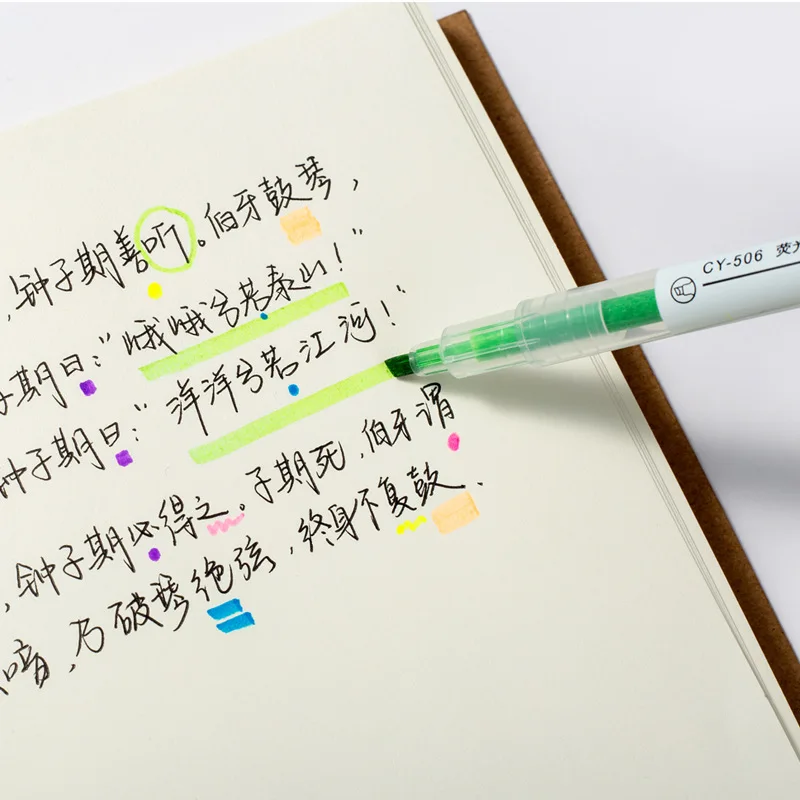 ，钟子期善听。伯牙鼓琴，
子期曰：“哦哦兮若泰山！”
钟子期曰：“洋洋兮若江河！”
，钟子期必得之。子期死，伯牙谓
音，乃破琴绝弦，终身不复鼓..
CY-506 荧光